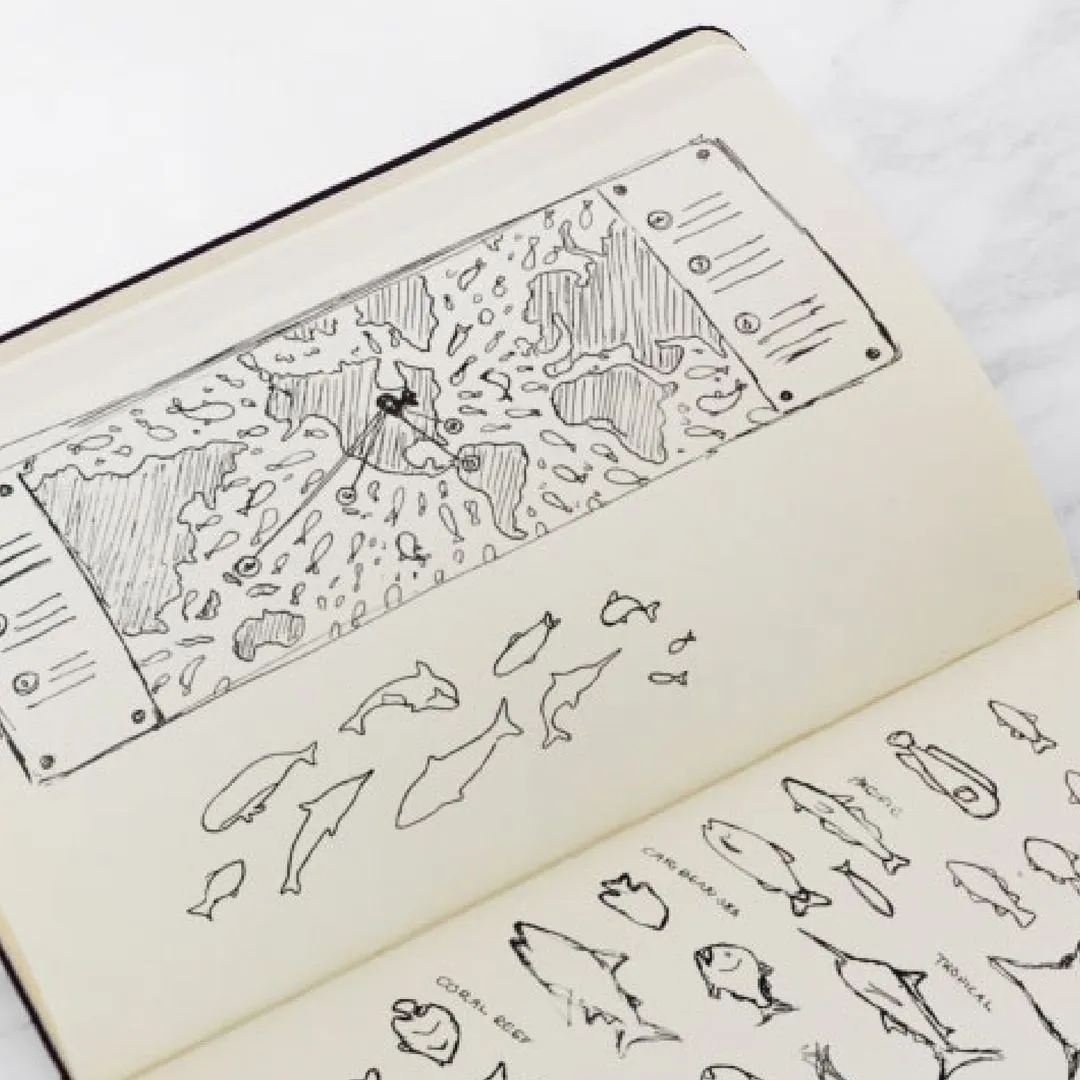 PACIFIC
CARIBBEAN SEA
TROPICAL
CORAL REEF